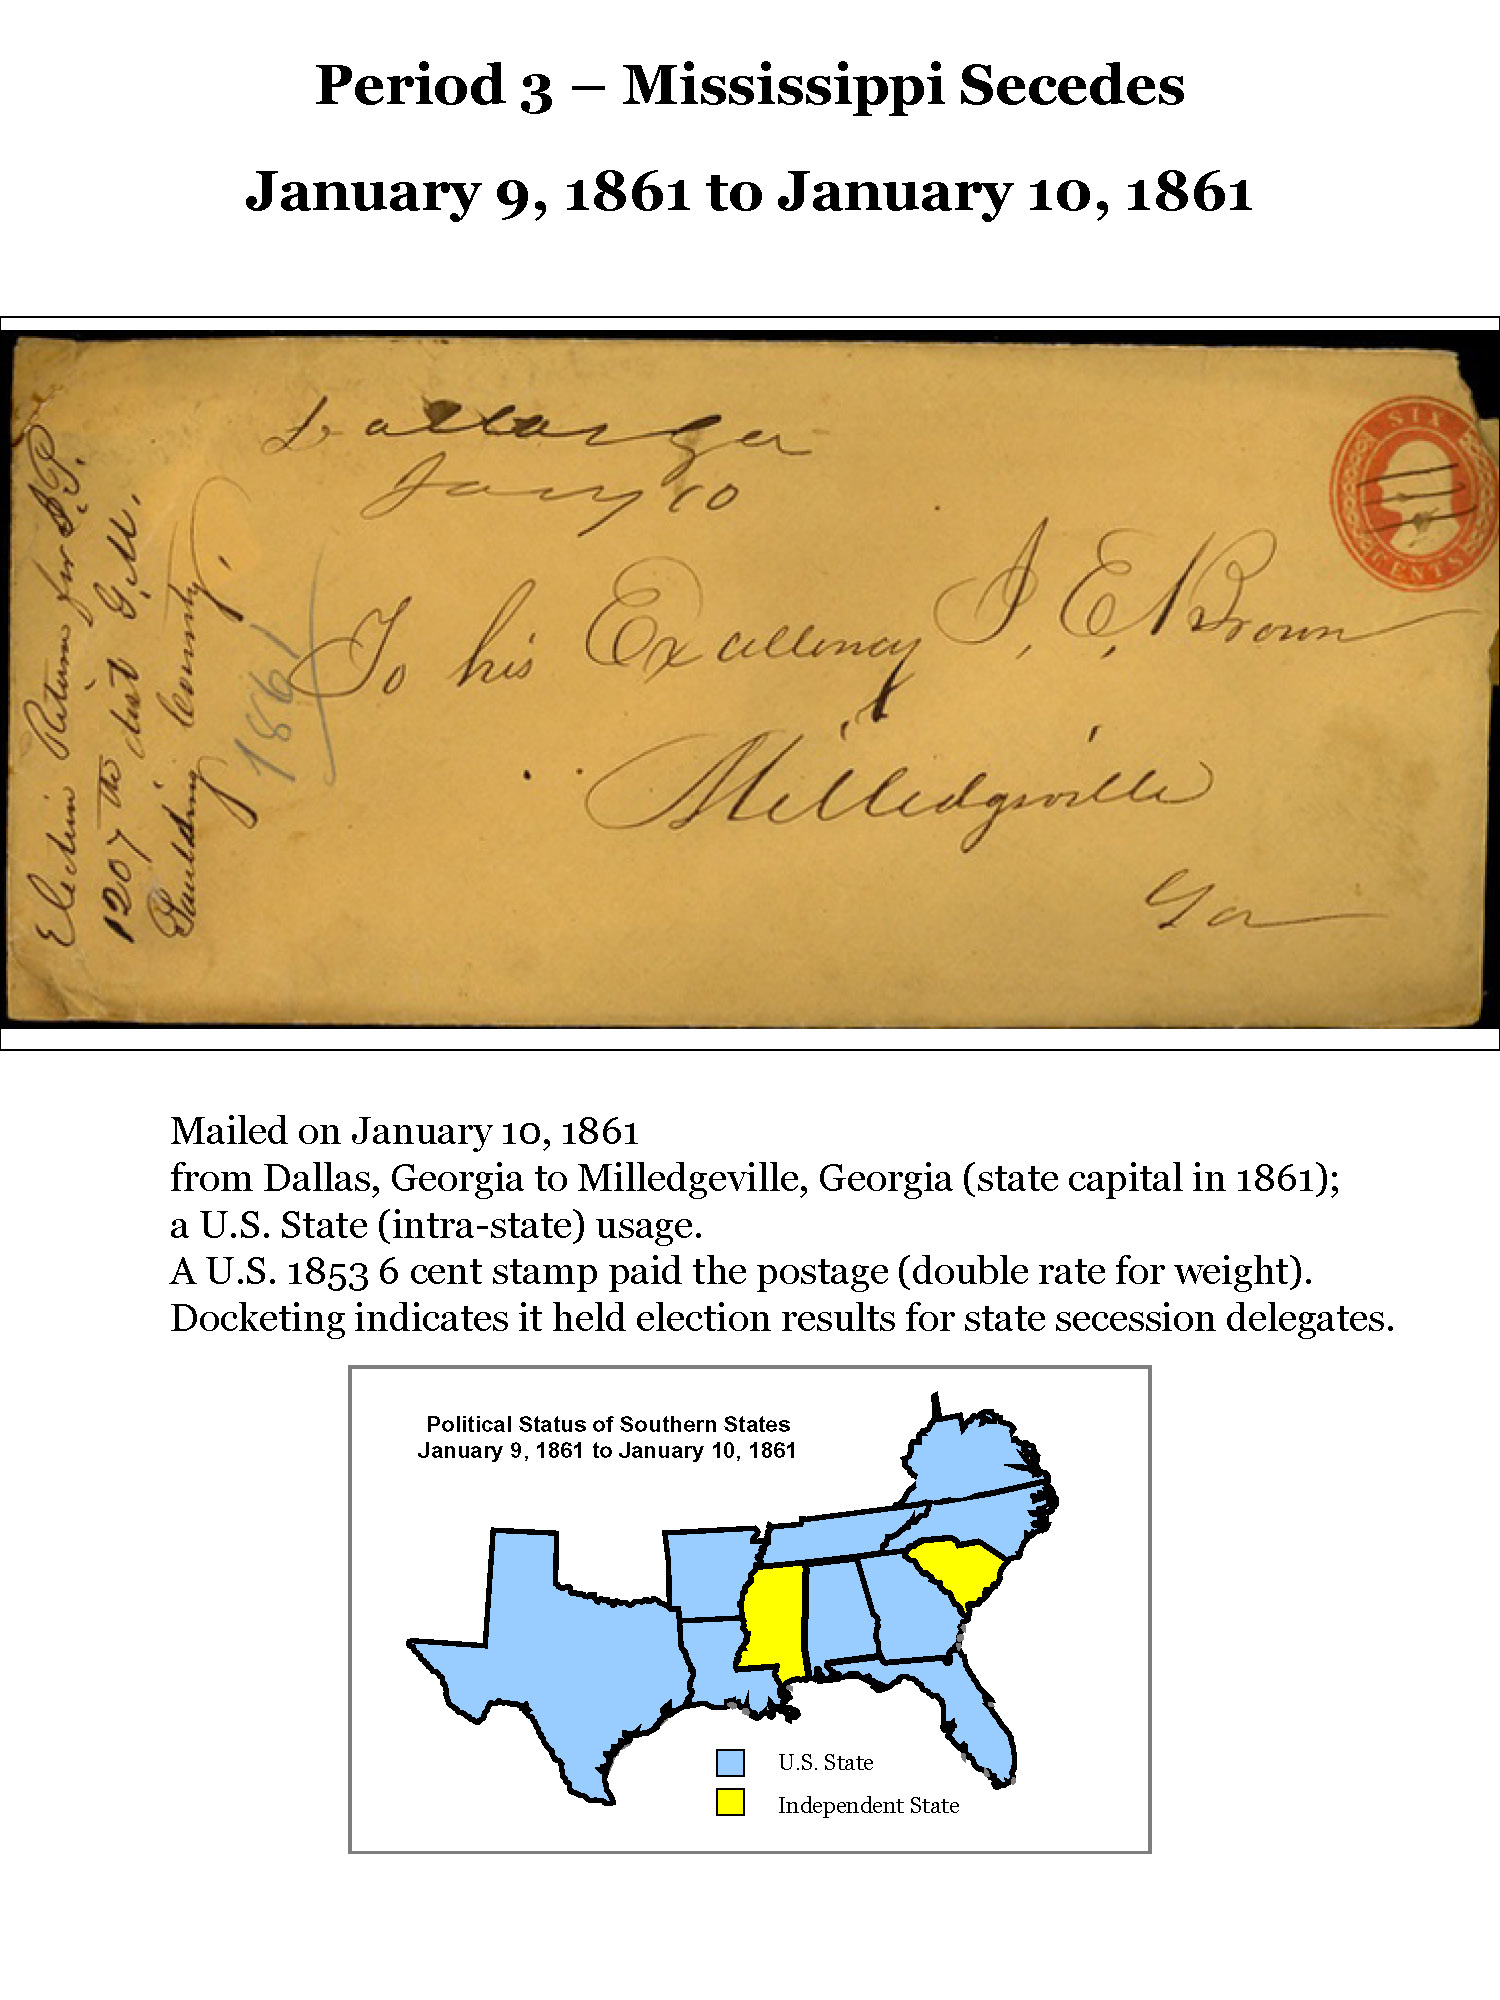 Period 3 – Mississippi Secedes
January 9, 1861 to January 10, 1861
Dallas Ga
Jany 10
SIX
CENTS
To his Excellency J. E. Brown
Milledgeville
Ga
Election Return for J.P.
1207 th dist G.M.
Paulding County.
1861
Mailed on January 10, 1861
from Dallas, Georgia to Milledgeville, Georgia (state capital in 1861);
a U.S. State (intra-state) usage.
A U.S. 1853 6 cent stamp paid the postage (double rate for weight).
Docketing indicates it held election results for state secession delegates.
Political Status of Southern States
January 9, 1861 to January 10, 1861
U.S. State
Independent State